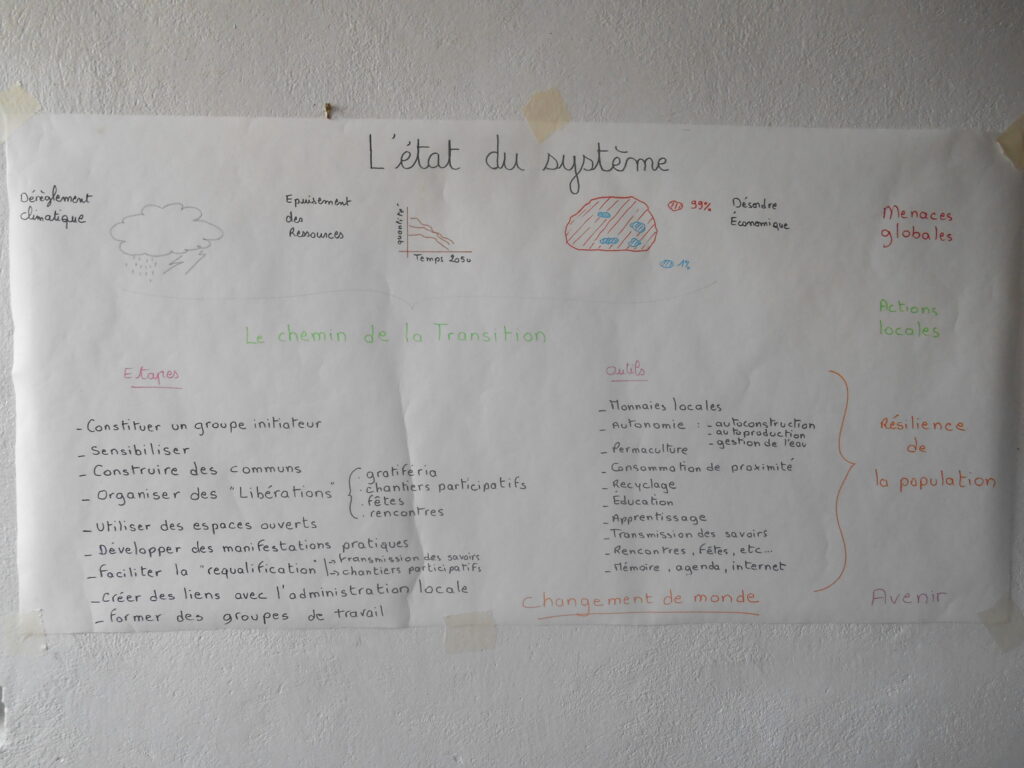 L'état du système
Dérèglement
climatique
Epuisement
des
Ressources
quantité
Temps 2050
99%
1%
Désordre
Économique
Menaces
globales
Le chemin de la Transition
Actions
locales
Etapes
- Constituer un groupe initiateur
- Sensibiliser
- Construire des communs
- Organiser des "Libérations"
. gratiféria
. chantiers participatifs
. fêtes
. rencontres
- Utiliser des espaces ouverts
- Développer des manifestations pratiques
- Faciliter la "requalification"
→ transmission des savoirs
→ chantiers participatifs
- Créer des liens avec l'administration locale
- Former des groupes de travail
Outils
- Monnaies locales
- Autonomie : - autoconstruction
- autoproduction
- gestion de l'eau
- Permaculture
- Consommation de proximité
- Recyclage
- Éducation
- Apprentissage
- Transmission des savoirs
- Rencontres, fêtes, etc...
- Mémoire, agenda, internet
Résilience
de
la population
Changement de monde
Avenir